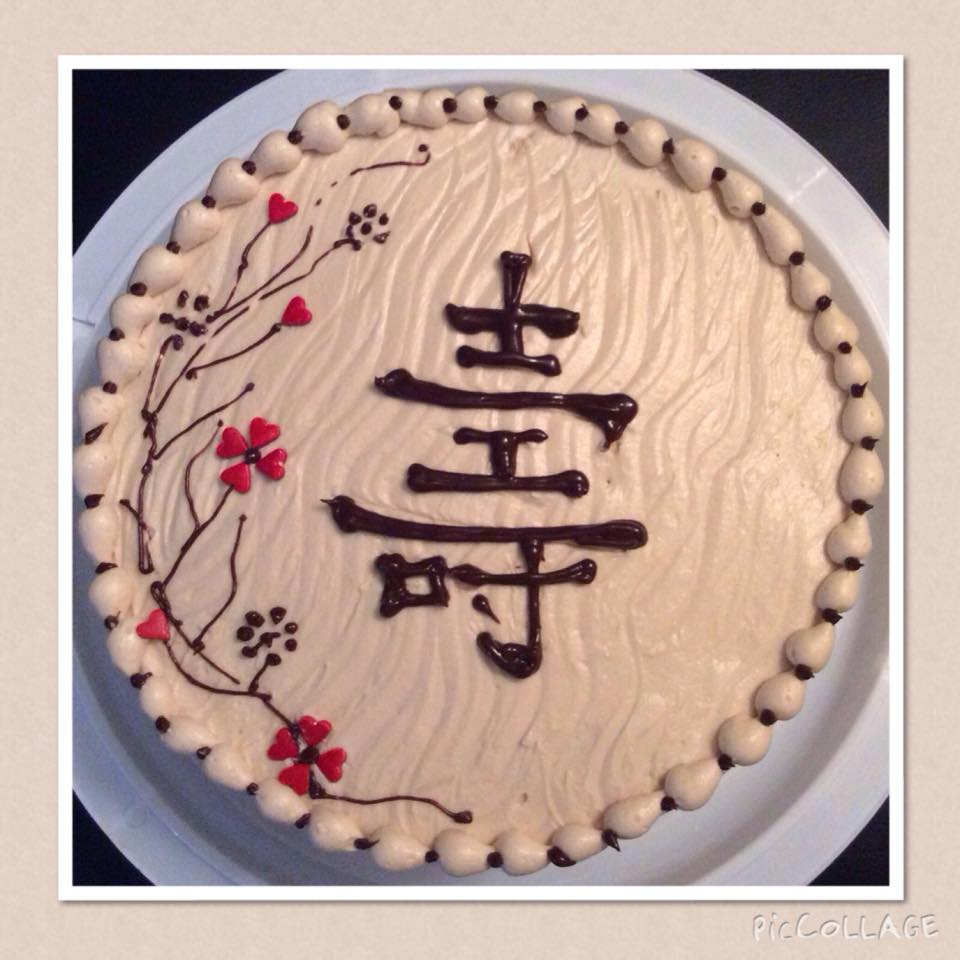 壽
PICCOLLAGE